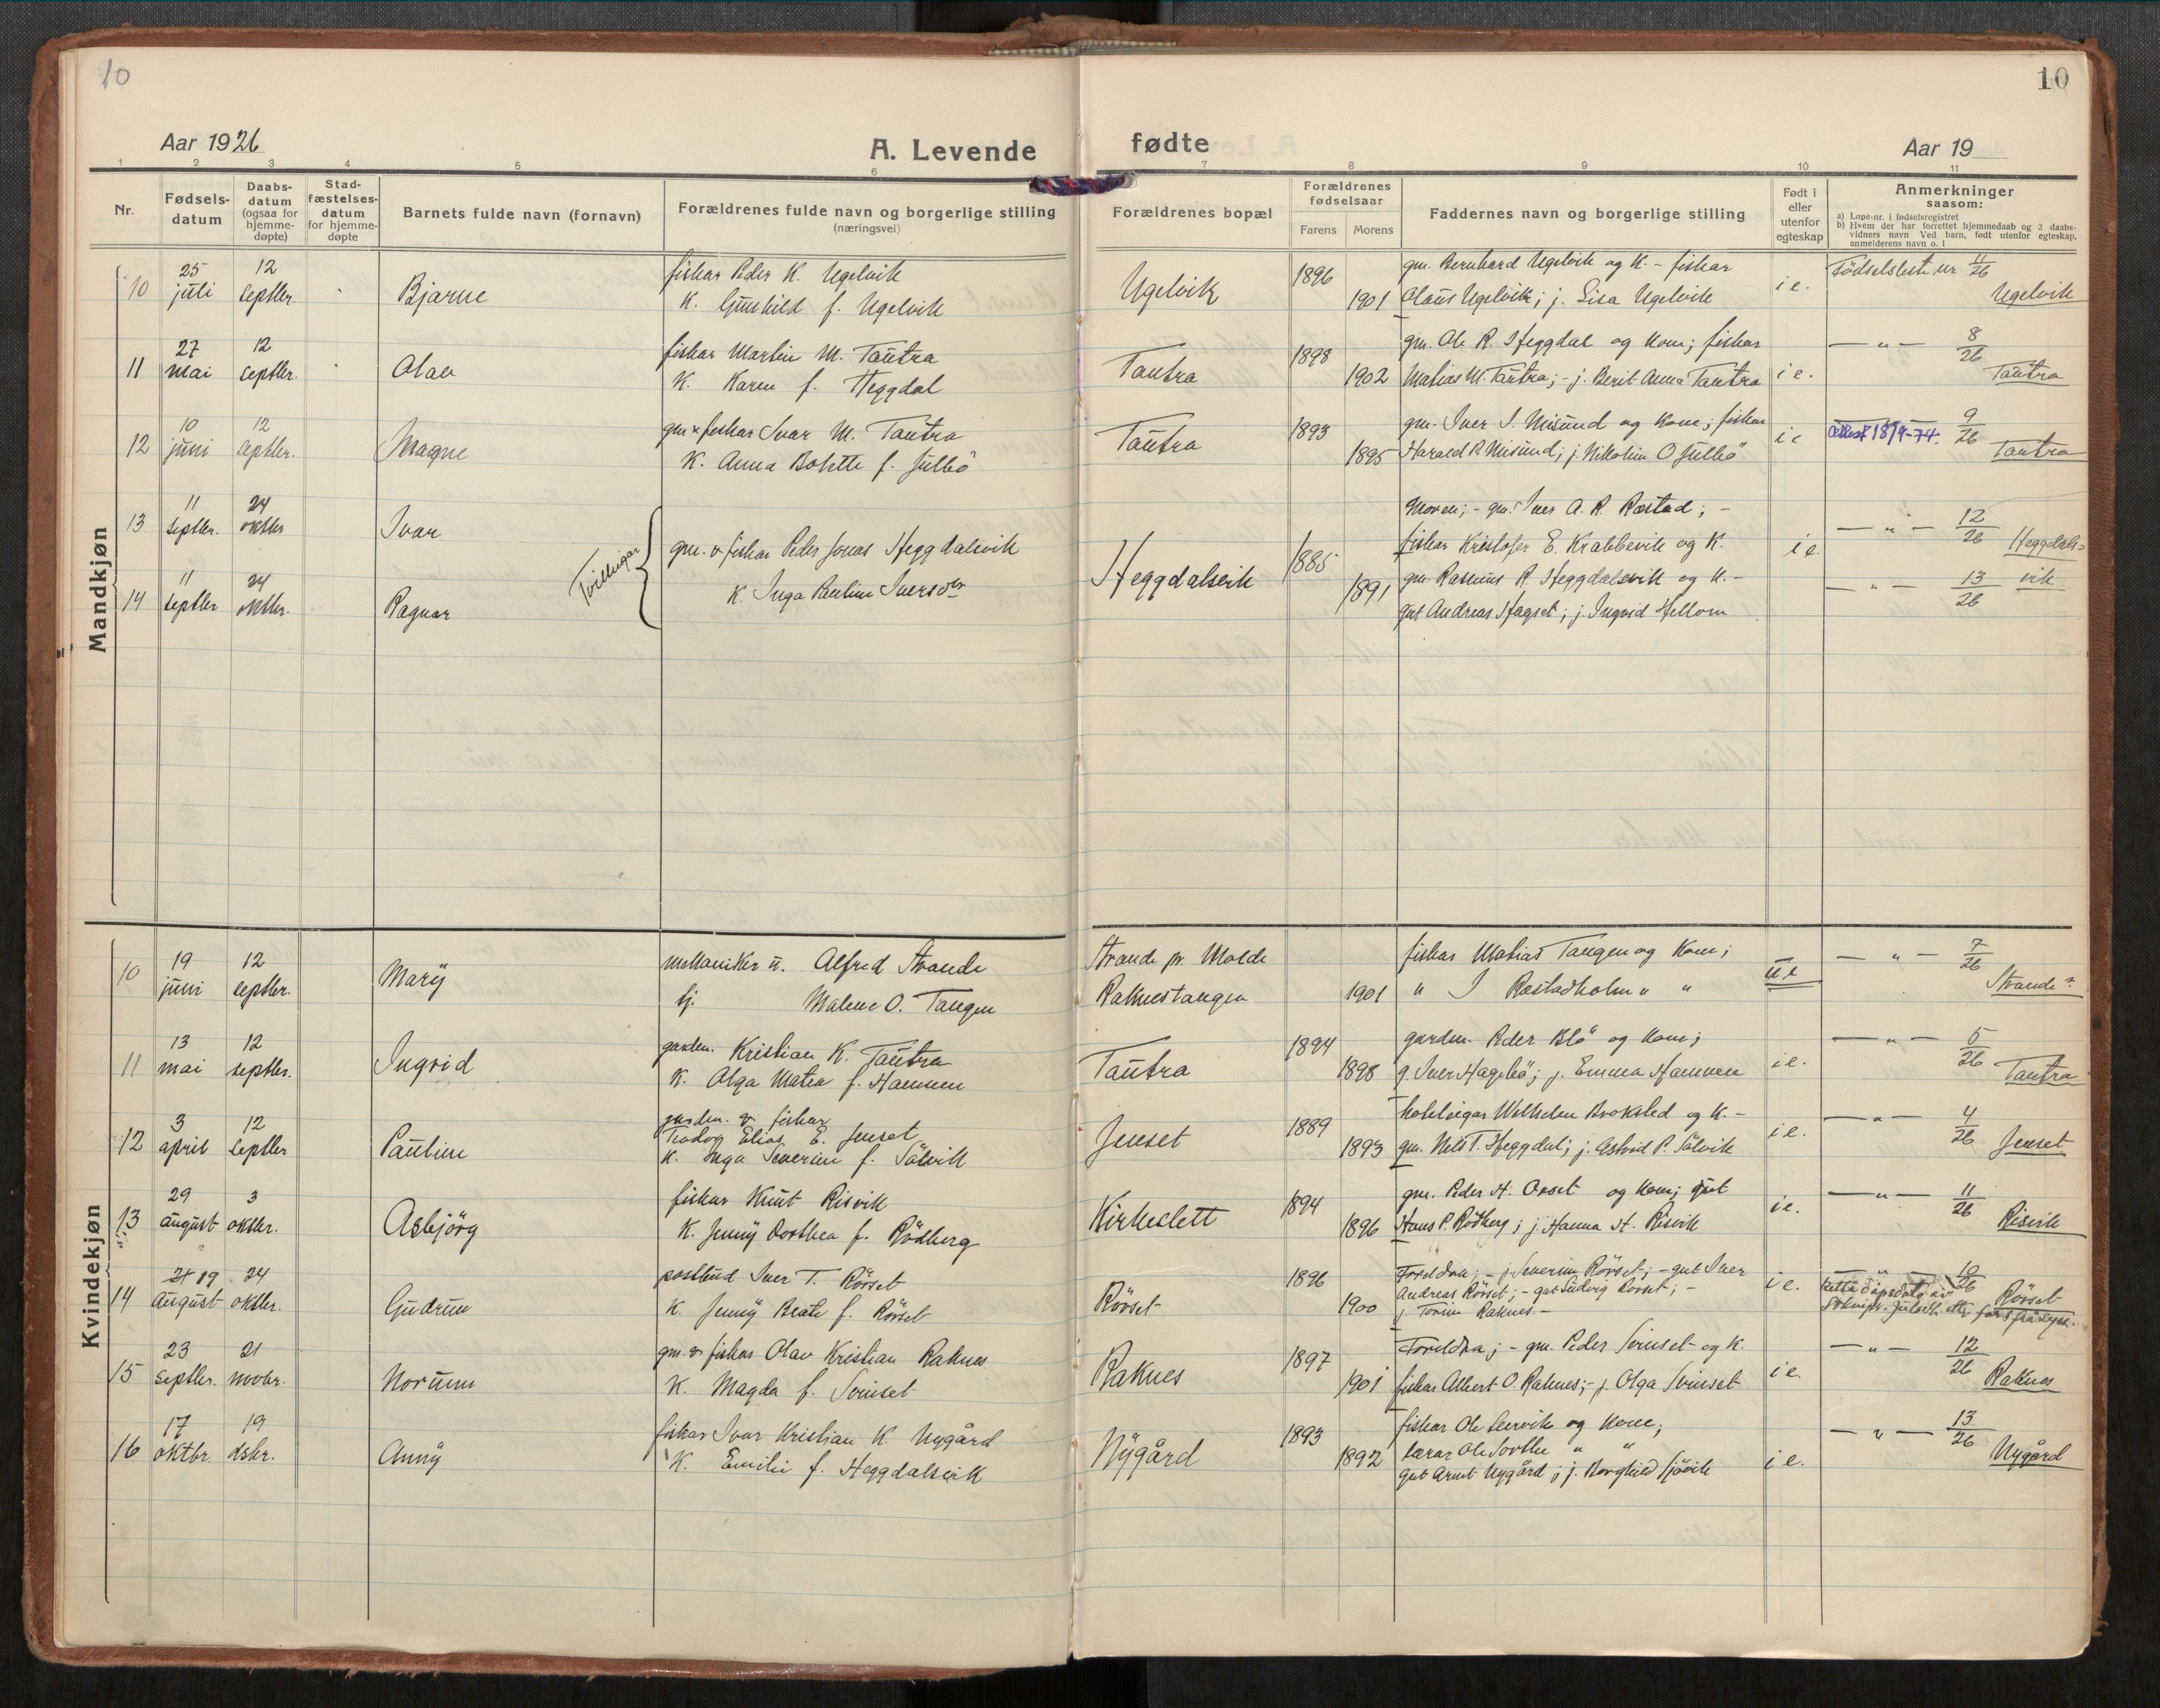 10
10
Aar 1926
A. Levende
fødte
Aar 19
1 2 3 4 5 6 7 8 9 10 11
Nr.
Fødsels-
datum
Daabs-
datum
(ogsaa for
hjemme-
døpte)
Stad-
fæstelses-
datum
for hjemme-
døpte
Barnets fulde navn (fornavn)
Forældrenes fulde navn og borgerlige stilling
(næringsvei)
Forældrenes bopæl
Forældrenes
fødselsaar
Farens Morens
Faddernes navn og borgerlige stilling
Født i
eller
utenfor
egteskap
Anmerkninger
saasom:
a) Løpe-nr. i fødselsregistret
b) Hvem der har forrettet hjemmedaab og 2 daabs-
vidners navn Ved barn, født utenfor egteskap,
anmelderens navn o. l
Mandkjøn
10 25 juli 12 septbr. Bjarne
fiskar Peder K. Ugelvik
K. Gunhild f. Ugelvik
Ugelvik 1896 1901
gm. Bernhard Ugelvik og K. - fiskar
Olaus Ugelvik; j. Lisa Ugelvik
i e. Födselsliste nr 11/26
Ugelvik
11 27 mai 12 septbr. Olav
fiskar Martin M. Tautra
K. Karen f. Heggdal
Tautra 1898 1902
gm. Ole R. Heggdal og Kone; fiskar
Matias M. Tautra; - j. Berit Anna Tautra
i e. — " — 8/26
Tautra
12 10 juni 12 septbr. Magne
gm & fiskar Ivar M. Tautra
K. Anna Bolette f. Julbö
Tautra 1893 1895
gm. Iver I. Misund og Kone; fiskar
Harald P. Misund; j. Nikolin O Julbö
i e Attest 18/9-74. 9/26
Tautra
13 11 septbr. 24 oktbr Ivar
14 11 septbr 24 oktbr. Ragnar
Tvillingar
gm. & fiskar Peder Jonas Heggdalsvik
K. Inga Pauline Iversdtr
Heggdalsvik 1885 1891
Moren; - gm. Iver A. R. Røstad; -
fiskar Kristofer E. Krabbevik og K.
gm. Rasmus R. Heggdalsvik og K. -
gut Andreas Hagset; j. Ingrid Hellom
i e. — " — 12/26 Heggdals-
— " — 13/26 vik
Kvindekjøn
10 19 juni 12 septbr. Mary
mekaniker u. Alfred Strande
tj. Malene O. Tangen
Strande pr. Molde
Raknestangen 1901
fiskar Matias Tangen og Kone;
" I Røstadholm " "
u e — " — 7/26
Strande
11 13 mai 12 septbr. Ingrid
gardm. Kristian K. Tautra
K. Olga Matea f. Hammen
Tautra 1894 1898
gardm. Peder Blö og Kone;
g. Iver Hagebö; j. Emma Hammen
i e. — " — 5/26
Tautra
12 3 april 12 septbr Pauline
gardm. & fiskar
Teodor Elias E. Jenset
K. Inga Severine f. Sölvik
Jenset 1889 1893
hotelleigar Wilhelm Brokstad og K. -
gm. Nels T. Heggdal; j. Astrid P. Sölvik
i e. — " — 4/26
Jenset
13 29 august 3 oktbr. Asbjörg
fiskar Knut Risvik
K. Jenny Dorthea f. Rödberg
Kirkeslett 1894 1896
gm. Peder H. Orset og Kone; gut
Hans P. Rödberg; j. Hanna H. Risvik
i e. — " — 11/26
Risvik
14 21 19 august 24 oktbr. Gudrun
postbud Iver T. Rörset
K. Jenny Beate f. Rörset
Rörset 1896 1900
Foreldra; - j. Severine Rörset; - gut Iver
Andreas Rörset; - gut Ludvig Rörset; -
j. Torine Raknes. -
i e. — " — 10/26
Rörset
15 23 septbr. 21 novbr. Norunn
gm. & fiskar Olav Kristian Raknes
K. Magda f. Svinset
Raknes 1897 1901
Foreldra; - gm. Peder Svinset og K.
fiskar Albert O. Raknes; - j. Olga Svinset
i e. — " — 12/26
Raknes
16 17 oktbr. 19 dsbr. Anny
fiskar Ivar Kristian K. Nygård
K. Emilie f. Heggdalsvik
Nygård 1893 1892
fiskar Ole Leervik og Kone;
lærar Ole Sorthe " "
gut Arnt Nygård; j. Borghild Sjövik
i e. — " — 13/26
Nygård